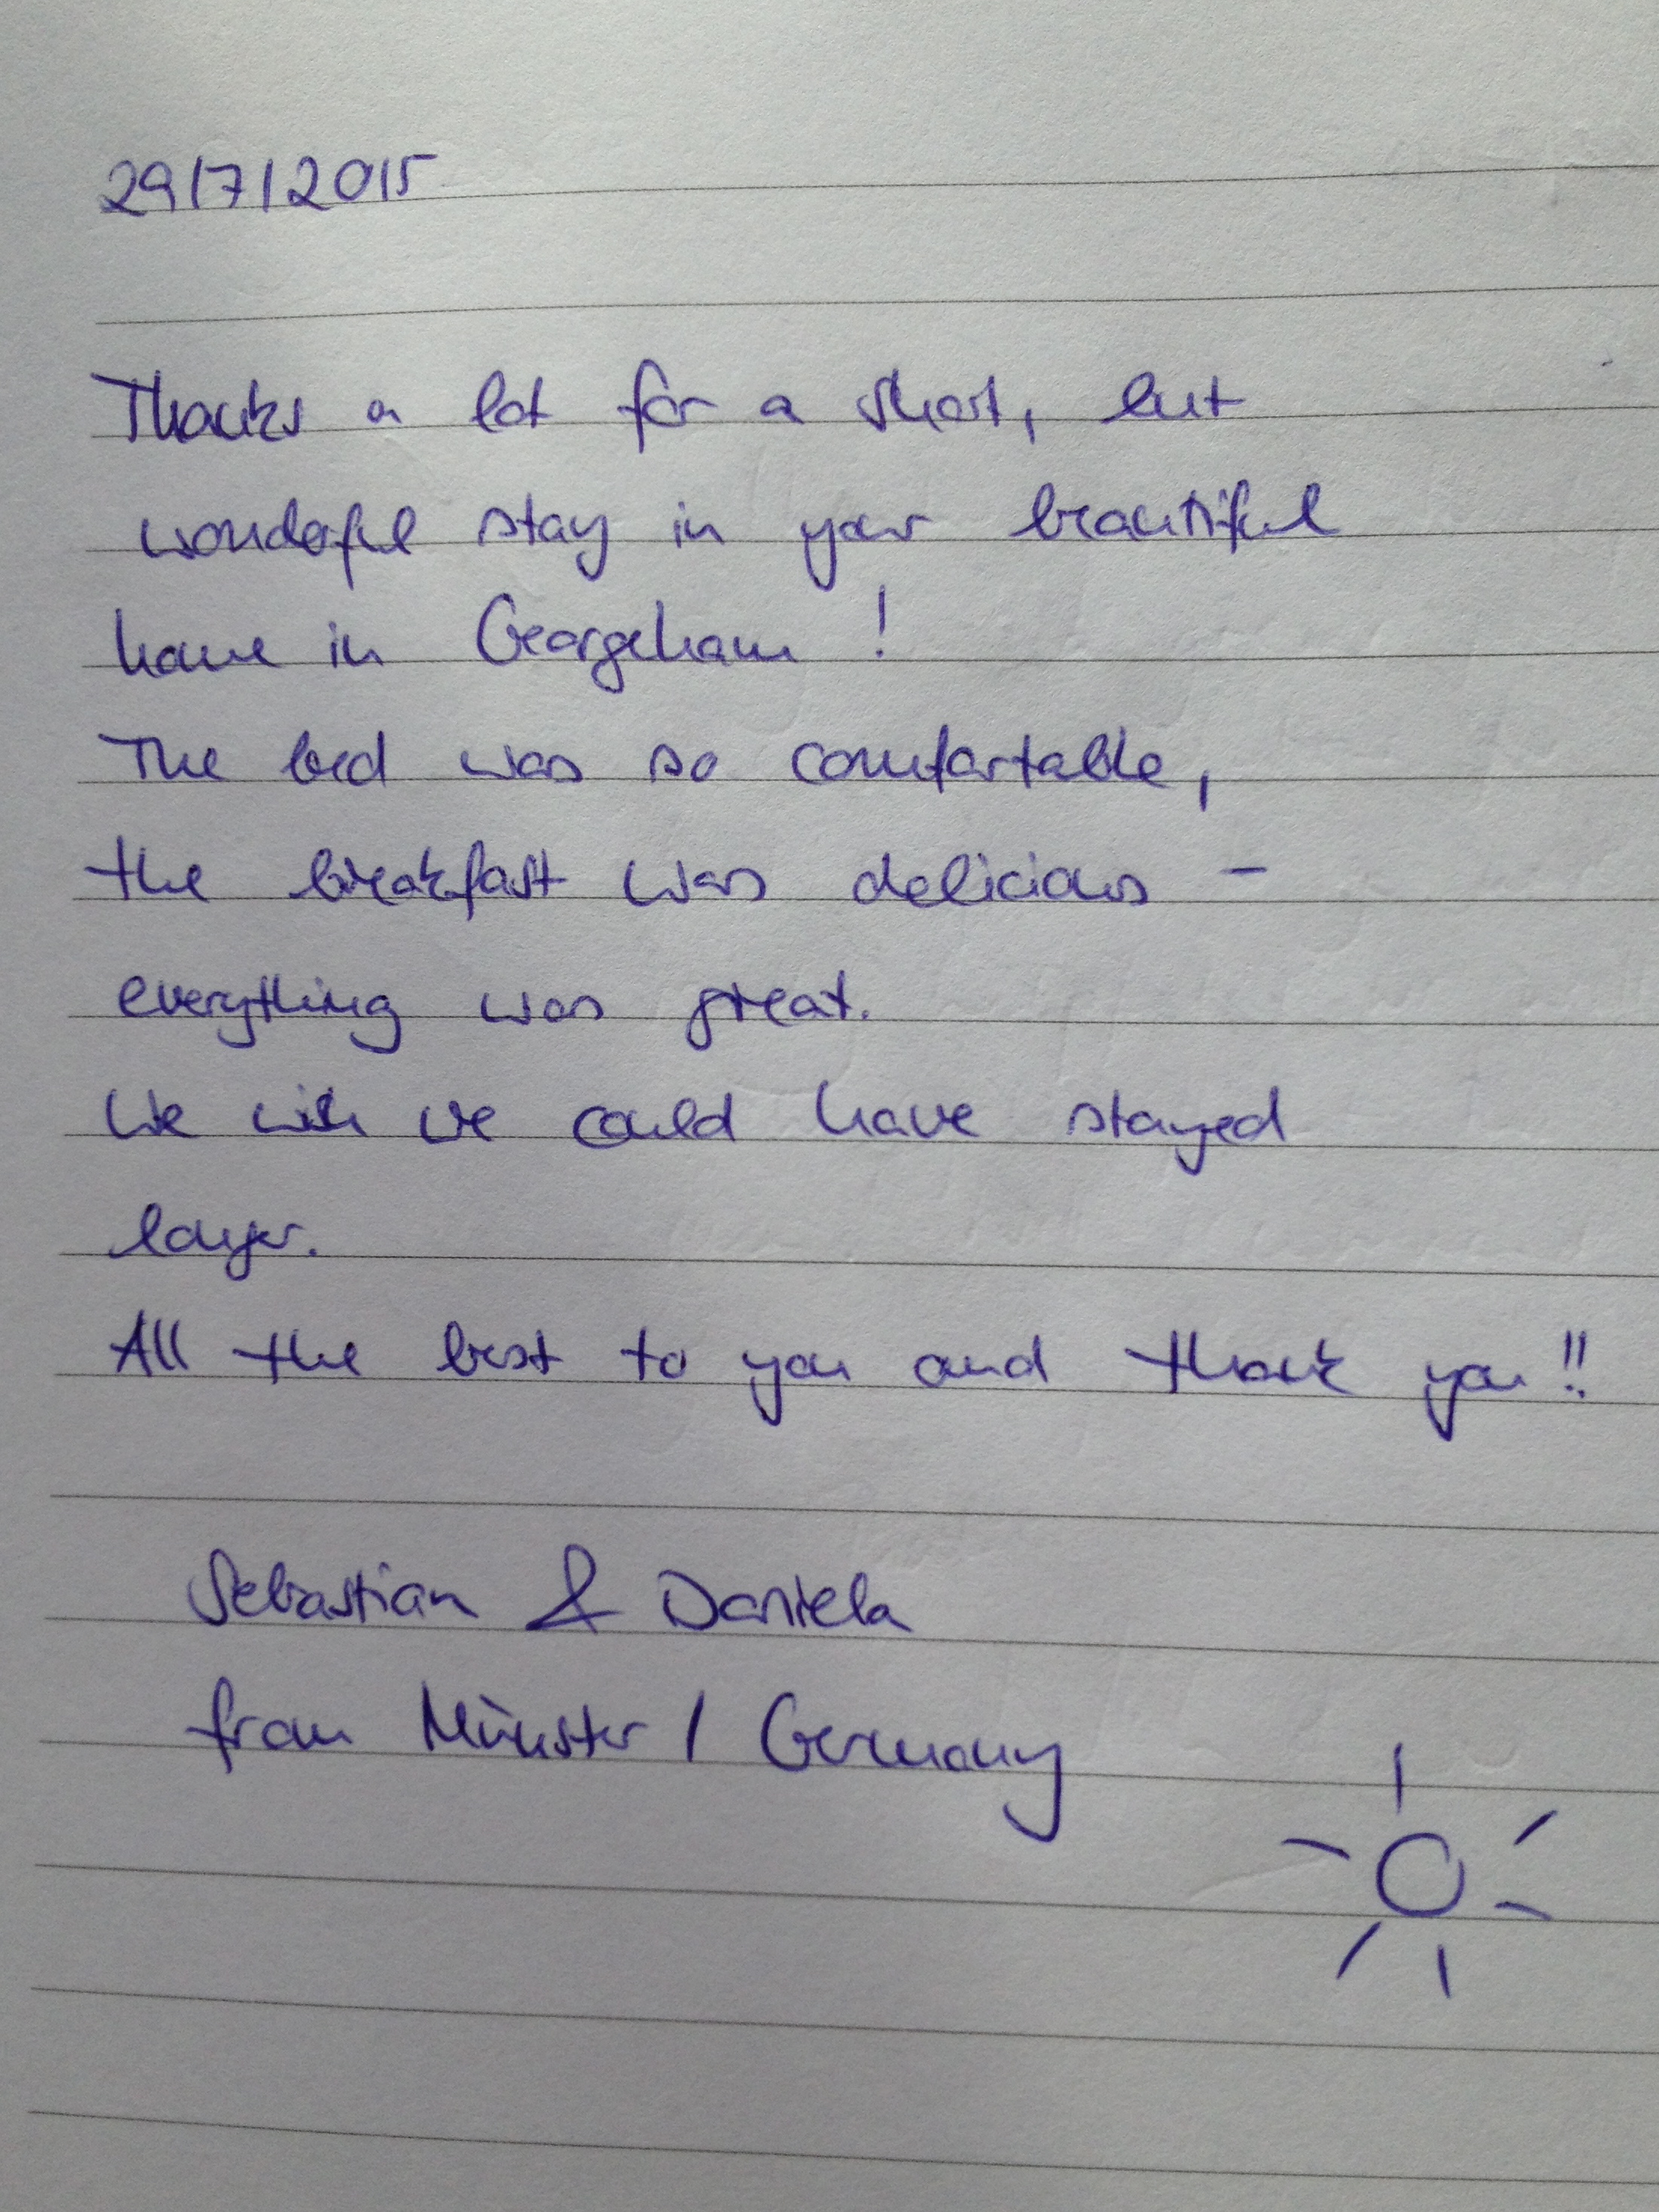 29/7/2015
Thanks a lot for a short, but
wonderful stay in your beautiful
home in Georgeham!
The bed was so comfortable,
the breakfast was delicious -
everything was great.
We wish we could have stayed
longer.
All the best to you and thank you!!
Sebastian & Daniela
from Münster / Germany